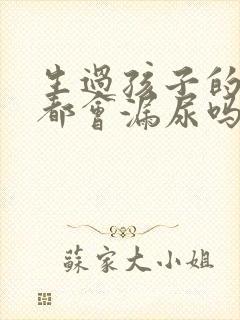 生過孩子的
都會漏尿嗎
蘇家大小姐